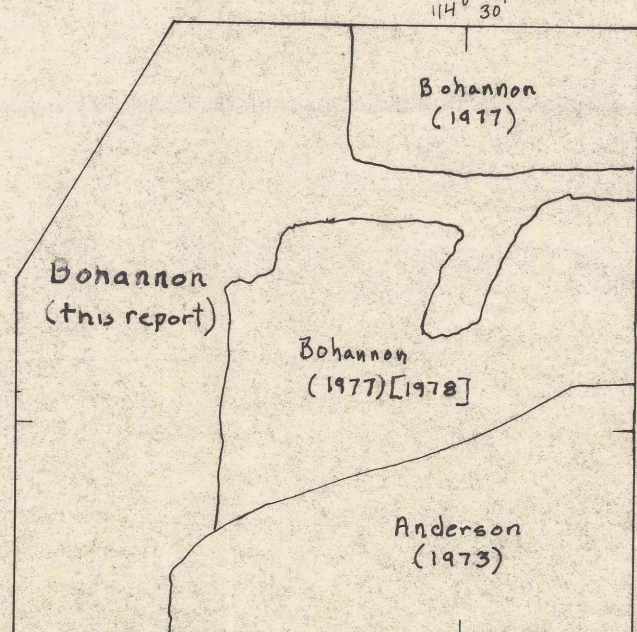 114° 30'
Bohannon
(1977)
Bohannon
(this report)
Bohannon
(1977)[1978]
Anderson
(1973)